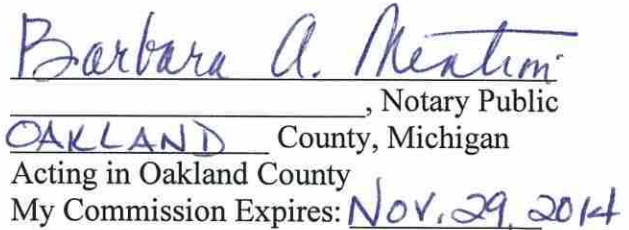 Barbara A.
, Notary Public
OAKLAND County, Michigan
Acting in Oakland County
My Commission Expires: Nov. 29, 2014